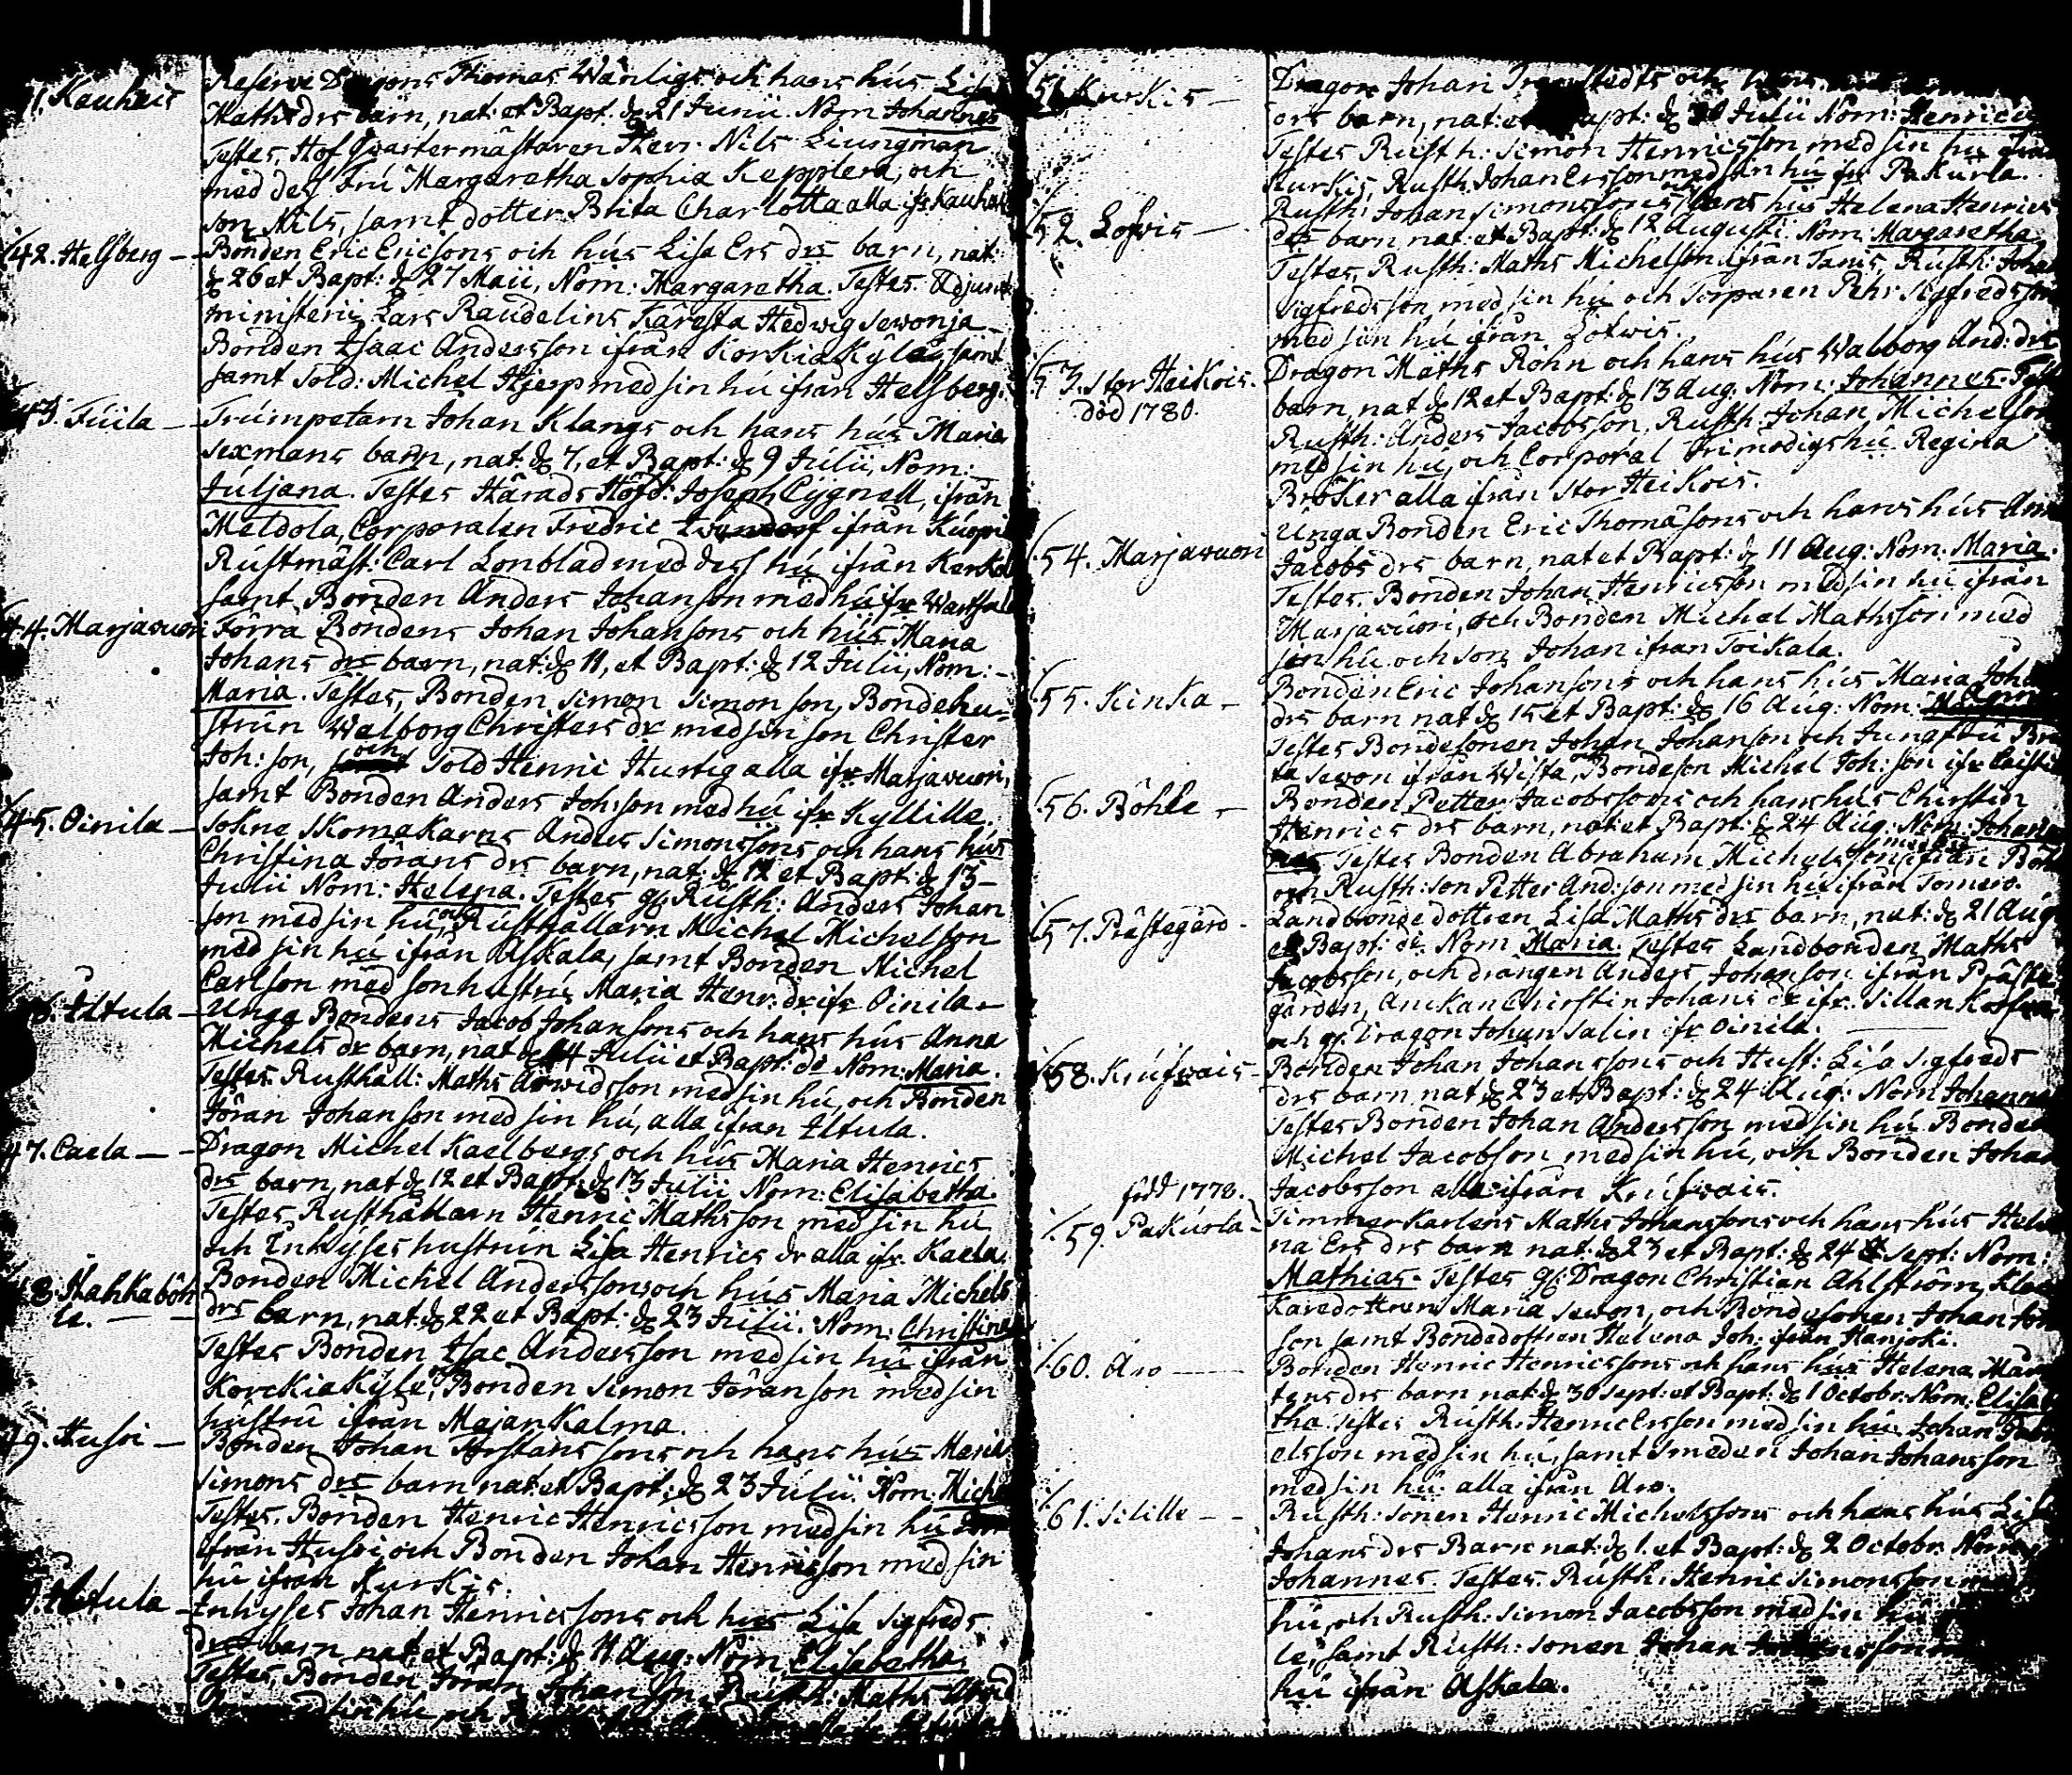 41. Kauhais
Reserve Dragons Thomas Wänligs och hans hús Lisa
Maths drs barn, nat: et Bapt. d. 21 Junii. Nom Johannes
Testes, Hof Qvartermästaren Herr Nils Liungman
med dess Frú Margaretha Sophia Kepplera, och
son Nils, samt dotter Brita Charlotta alla ifr Kauhais
42. Helsberg — Bonden Eric Ericsons och hús Lisa Ers drs barn, nat:
d. 26 et Bapt: d. 27 Maii, Nom: Margaretha. Testes. Adjunct
ministerii Lars Raudelins Käresta Hedwig Sewonja
Bonden Isaac Andersson ifrån Korkia Kylä, samt
samt Sold: Michel Hjerp med sin hú ifrån Helsberg.
43. Túila — Trúmpetarn Johan Klangs och hans hús Maria
Sexmans barn, nat: d. 7, et Bapt: d. 9 Júlii, Nom:
Júljana. Testes Härads Höfd: Joseph Cÿgnell, ifrån
Meldola, Corporalen Fredric ifrån Kúopi
Rústmäst: Carl Lonblad med dess hú ifrån
samt Bonden Anders Johanson med hú ifr
44. Marjavuori Förra Bondens Johan Johansons och hús Maria
Johans drs barn, nat: d. 11, et Bapt: d. 12 Júlii, Nom: –
Maria. Testes, Bonden Simon Simonson, Bondehu-
strún Walborg Christers dr med sin son Christer
Joh: son, och Sold Henric Hurtig alla ifr Marjavuori,
samt Bonden Anders Johsson med hú ifr Kyllille.
45. Oinila — Sokne Skomakarns Anders Simonssons och hans hús
Christina Jörans drs barn, nat: d. 12 et Bapt: d. 13 –
Julii Nom: Helena. Testes gf: Rusth: Anders Johan
son med sin hú, och Rústhållarn Michel Michelson
med sin hú ifrån Askala, samt Bonden Michel
Carlson med sonhustrú Maria Henr: dr ifr Oinila –
46. Iltula — Unga Bondens Jacob Johansons och hans hús Anna
Michels dr barn, nat d. 14 Júlii et Bapt: do Nom: Maria.
Testes. Rusthåll: Maths Arwidsson med sin hú, och Bonden
Jöran Johanson med sin hú, alla ifrån Iltula.
47. Caela — Dragon Michel Kaelbergs och hús Maria Henrics
drs barn, nat d. 12 et Bapt: d. 13 Júlii Nom: Elisabetha.
Testes Rusthållarn Henric Mathsson med sin hú
och Inhÿses hustrún Lisa Henrics dr alla ifr. Kaela.
48. Hahkaböh
le. — Bonden Michel Anderssons och hús Maria Michels
drs barn, nat: d. 22 et Bapt: d. 23 Júlii. Nom: Christina
Testes Bonden Isac Andersson med sin hú ifrån
Korckiakÿle, Bonden Simon Jöranson med sin
hústrú ifrån Majankalma.
49. Husoi — Bonden Johan sons och hans hús Maria
Simons drs barn nat: et Bapt: d. 23 Júlii. Nom: Michel
Testes. Bonden Henric Henricsson med sin hú
ifrån Husoi, och Bonden Johan Henricsson med sin
hú ifrån Kurkis.
Iltula — Inhyses Johan Henricssons och hús Lisa Sigfreds
drs barn, nat: et Bapt: d. 11 Aug: Nom Elisabetha.
Testes, Bonden Jöran Johanson, Rústh: Maths Arvid
51 Kurkis — Dragon Johan och
ers barn, nat: et Bapt: d. Julii Nom: Henricus
Testes Rusth: Simon Henricsson med sin hú ifrån
Kurkis, Rusth. Johan Ersson med sin hú ifr Pakurla.
52. Lofvis — Rusth: Johan Simonssons och hans hús Helena Henrics
drs barn nat: et Bapt: d. 12 Augusti. Nom: Margaretha
Testes, Rusth: Maths Michelson ifrån Rusth: Johan
Sigfredsson, med sin hú och Torparen Pehr Sigfredsson
med sin hú ifrån Lofwis.
53. Stor Heikois.
död 1780.
Dragon Maths Rohn och hans hús Walborg And: drs
barn, nat d. 12 et Bapt: d. 13 Aug: Nom: Johannes. Test
Rusth: Anders Jacobsson, Rusth: Johan Michelson
med sin hú, och Corporal Frimodigs hú Regina
Bröker alla ifrån Stor Heikois.
54. Marjavuori Unga Bonden Eric Thomäsons och hans hús Anna
Jacobs drs barn, nat et Bapt: d. 11 Aug: Nom: Maria.
Testes. Bonden Johan Henricsson med sin hú ifrån
Marjavuori, och Bonden Michel Mathsson med
sin hú och son Johan ifrån Toikala.
55. Kinka — Bonden Eric Johansons och hans hús Maria Joh
drs barn nat d. 15 et Bapt: d. 16 Aug: Nom: Anna
Testes Bondesonen Johan Johanson och Jungfrú Bri
ta Sewon ifrån Wista, och Bondeson Michel Joh: son ifr
56. Böhle — Bonden Petter Jacobssons och hans hús Christin
Henrics drs barn, nat: et Bapt: d. 24 Aug: Nom: Johan
nes Testes Bonden Abraham Michelsson med hú ifrån Böhle
och Rusth: son Petter And: son med sin hú ifrån
57. Prästegård — Landbonde dottren Lisa Maths drs barn, nat: d. 21 Aug
et Bapt: Nom Maria. Testes Landbonden Maths
Jacobsson, och drängen Anders Johanson ifrån Präste
gården, Änckan Chirstin Johans dr ifr.
och gf. Dragon Johan Salin ifr Oinila.
58. Krúfwais — Bonden Johan Johanssons och Hust: Lisa Sigfreds
drs barn nat d. 23 et Bapt: d. 24 Aug: Nom Johannes
Testes Bonden Johan Andersson med sin hú Bonden
Michel Jacobson med sin hú, och Bonden Johan
Jacobsson alla ifrån Krúfwais.
född 1778.
59. Pakúrla — Timmerkarlens Maths Johanssons och hans hús Hele
na Ers drs barn nat: d. 23 et Bapt: d. 24 Sept: Nom:
Mathias. Testes gf: Dragon Christian Ahlström, Kloc
karedottren Maria Sewon, och Bondesonen Johan Joh
son samt Bondedottren Helena Joh: ifrån Hanjoki.
60. Aro — Bonden Henric Henricssons och hans hús Helena Mår
tens drs barn nat: d. 30 Sept: et Bapt: d. 1 Octobr: Nom: Elisabe
tha. Testes Rústh: Henric Ersson med sin hú, Johan
elsson med sin hú, samt Smeden Johan Johansson
med sin hú alla ifrån Aro.
61. Sälille — Rusth: sonen Henric Michelssons och hans hús Lisa
Johans drs Barn nat: d. 1. et Bapt: d. 2 Octobr. Nom:
Johannes. Testes. Rústh: Henric Simonsson
hú, och Rusth: Simon Jacobsson med sin hú
le, samt Rústh: sonen Johan
hú ifrån Askala.